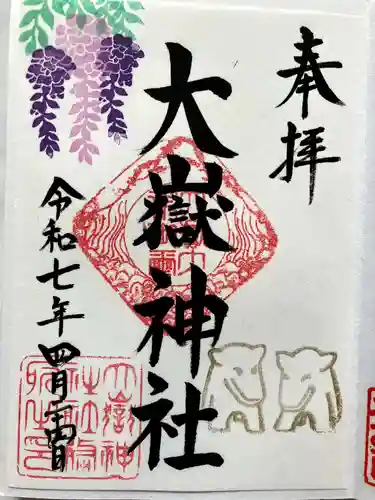 奉拝
大嶽神社
令和七年四月